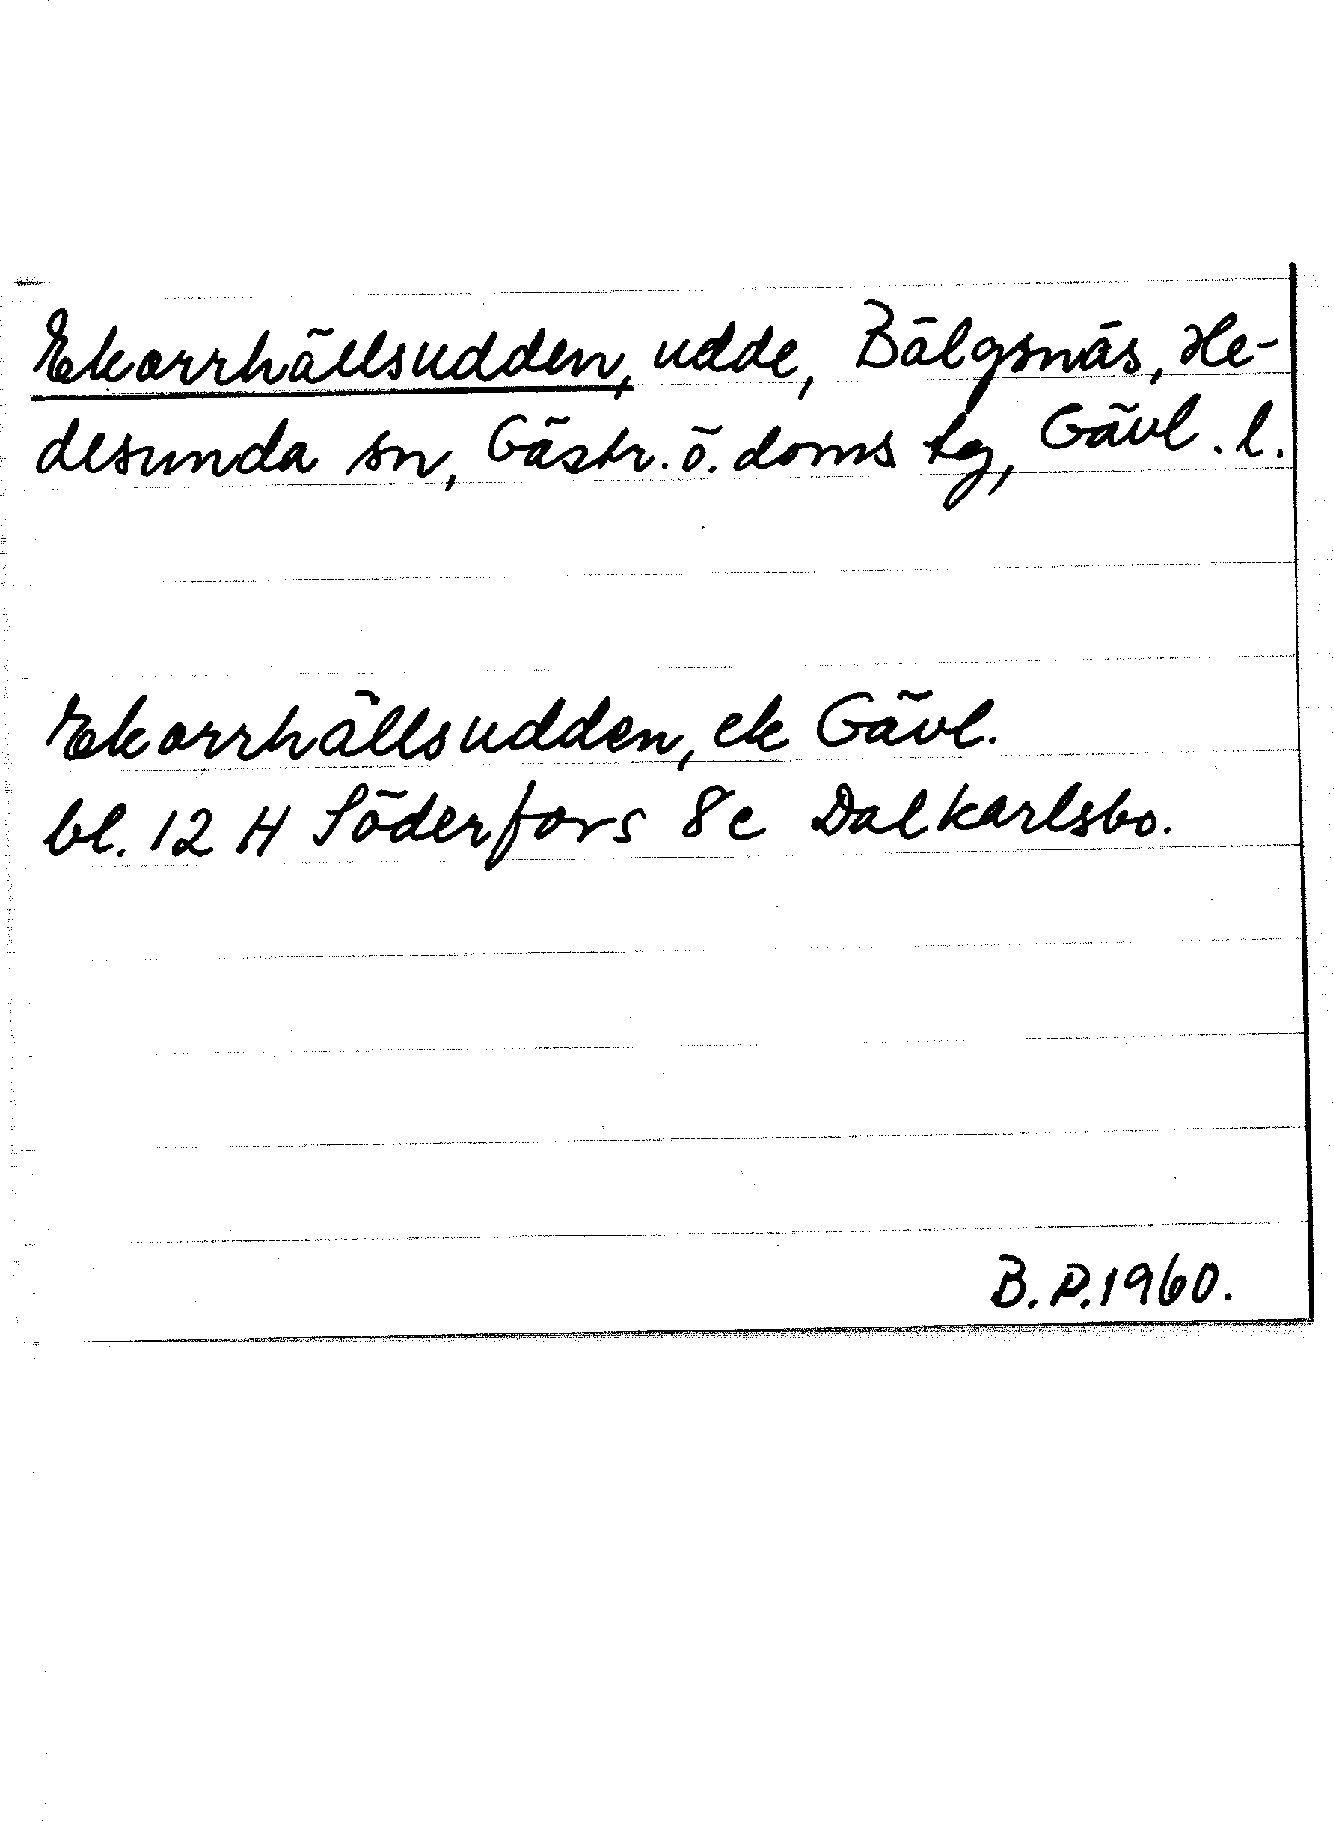 Ekorrhällsudden, udde, Bälgsnäs, He-
desunda sn, Gästr. ö. doms tg, Gävl. l.
Ekorrhällsudden, ek Gävl.
bl. 12 H Söderfors 8c Dalkarlsbo.
B.P.1960.